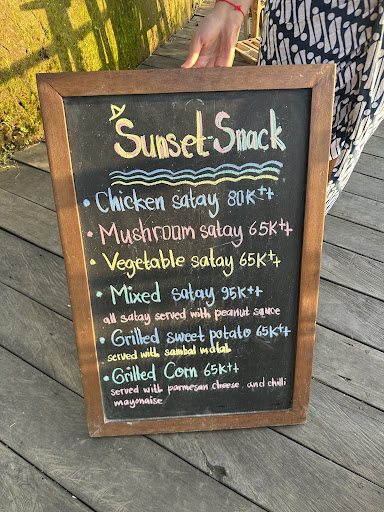 Sunset-Snack
• Chicken satay 80K++
• Mushroom satay 65K++
• Vegetable satay 65K++
• Mixed satay 95K++
all satay served with peanut sauce
• Grilled sweet potato 65K++
served with sambal matah
• Grilled Corn 65K++
served with parmesan cheese, and chilli
mayonaise